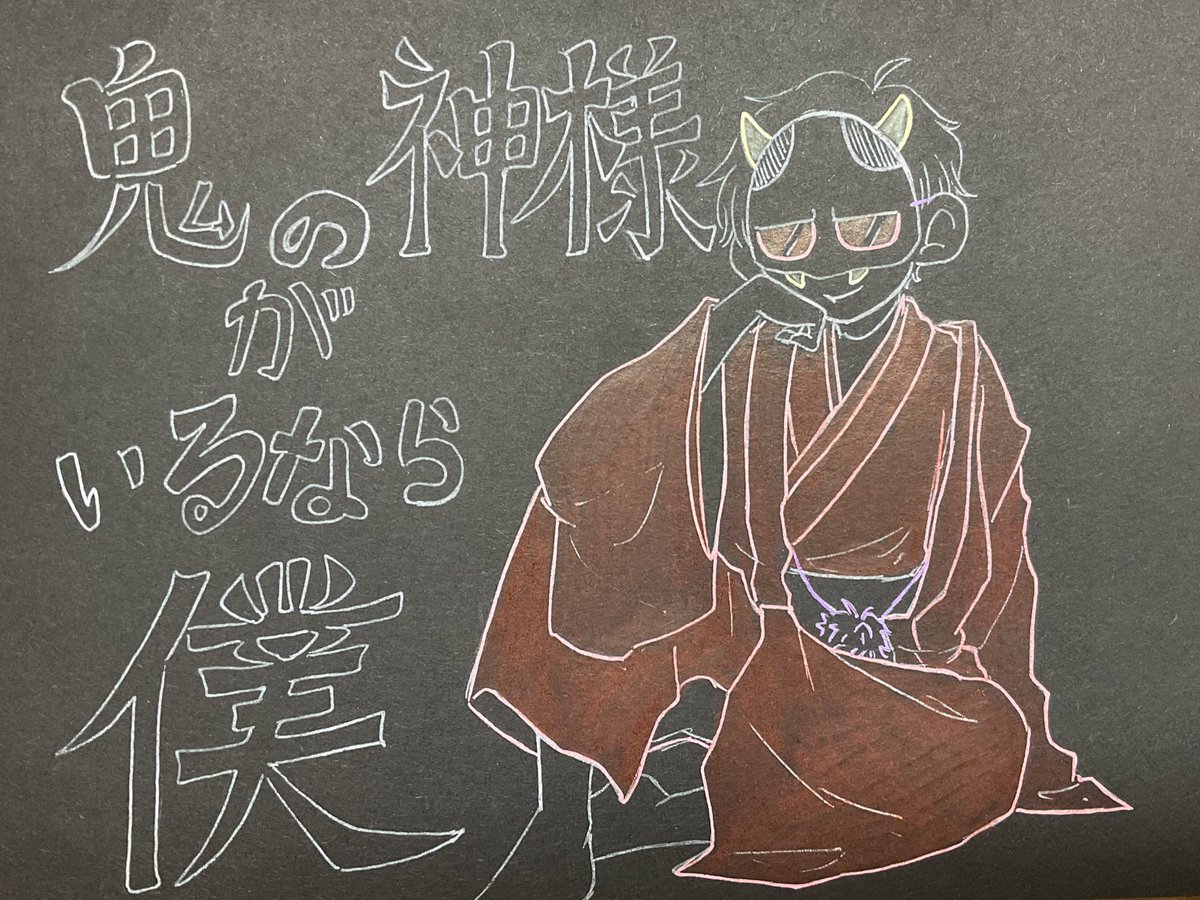 鬼の神様
が
いるなら
僕